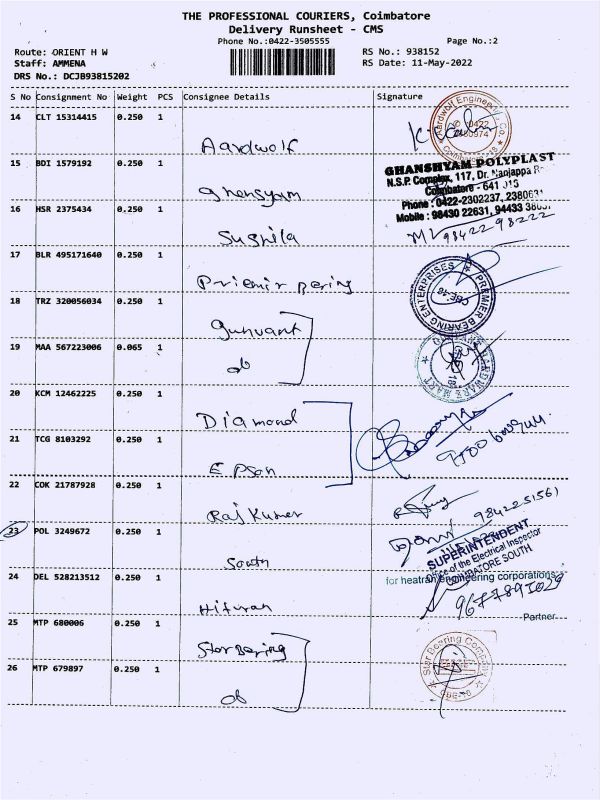 THE PROFESSIONAL COURIERS, Coimbatore
Delivery Runsheet - CMS
Phone No.:0422-3505555 Page No.:2
Route: ORIENT H W RS No.: 938152
Staff: AMMENA RS Date: 11-May-2022
DRS No.: DCJB93815202
S No Consignment No Weight PCS Consignee Details Signature
14 CLT 15314415 0.250 1 Aardwolf
Aardwolf Engineering Co.
15 BDI 1579192 0.250 1 Ghensyam
GHANSHYAM POLYPLAST
N.S.P. Complex, 117, Dr. Nanjappa R
Coimbatore - 641 015
Phone : 0422-2302237,
Mobile : 98430 22631, 94433
16 HSR 2375434 0.250 1 Sushila
9842298222
17 BLR 495171640 0.250 1 Premir Bering
PREMIER BEARING ENTERPRISES
CBE-18
18 TRZ 320056034 0.250 1 Gunvant
19 MAA 567223006 0.065 1 do
HARDWARE MART
20 KCM 12462225 0.250 1 Diamond
21 TCG 8103292 0.250 1 Epson
22 COK 21787928 0.250 1 Rajkumar
9842251561
23 POL 3249672 0.250 1 South
SUPERINTENDENT
Office of the Electrical Inspector
COIMBATORE SOUTH
24 DEL 528213512 0.250 1 Hituran
for heatran engineering corporations
Partner
25 MTP 680006 0.250 1 Star Bering
Star Bearing Company
CBE-18
26 MTP 679897 0.250 1 do